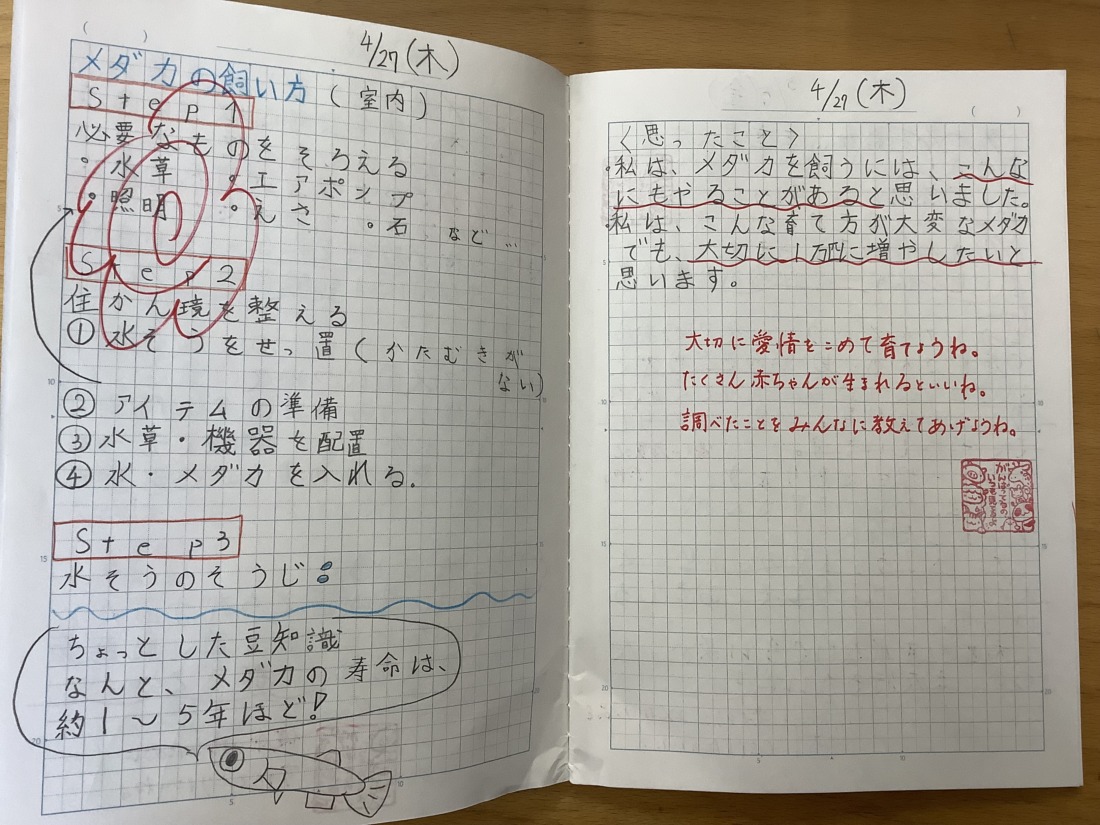 4/27(木)
メダカの飼い方(室内)
Step1
必要なものをそろえる
・水草 ・エアポンプ
・照明 ・えさ ・石 など…
Step2
住かん境を整える
①水そうをせっ置(かたむきが
ない)
②アイテムの準備
③水草・機器を配置
④水・メダカを入れる.
Step3
水そうのそうじ
ちょっとした豆知識
なんと、メダカの寿命は、
約1〜5年ほど!
4/27(木)
〈思ったこと〉
・私は、メダカを飼うには、こんな
にもやることがあると思いました。
・私は、こんな育て方が大変なメダカ
でも、大切に1万匹に増やしたいと
思います。
大切に愛情をこめて育てようね。
たくさん赤ちゃんが生まれるといいね。
調べたことをみんなに教えてあげようね。